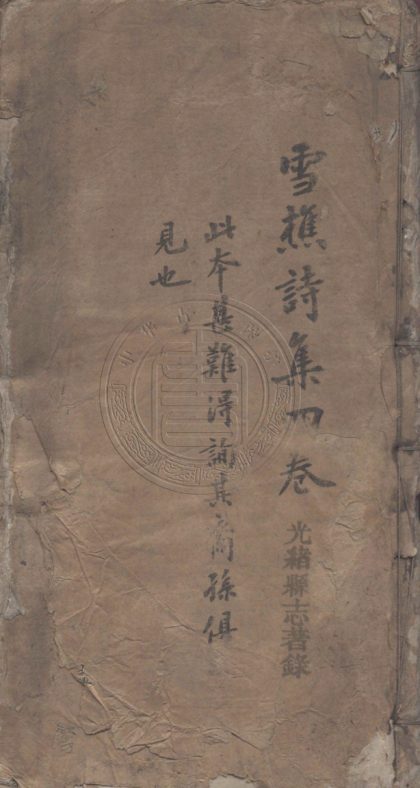 雪樵詩集四卷
光緒縣志著錄
此本甚難得詢其裔孫俱
見也